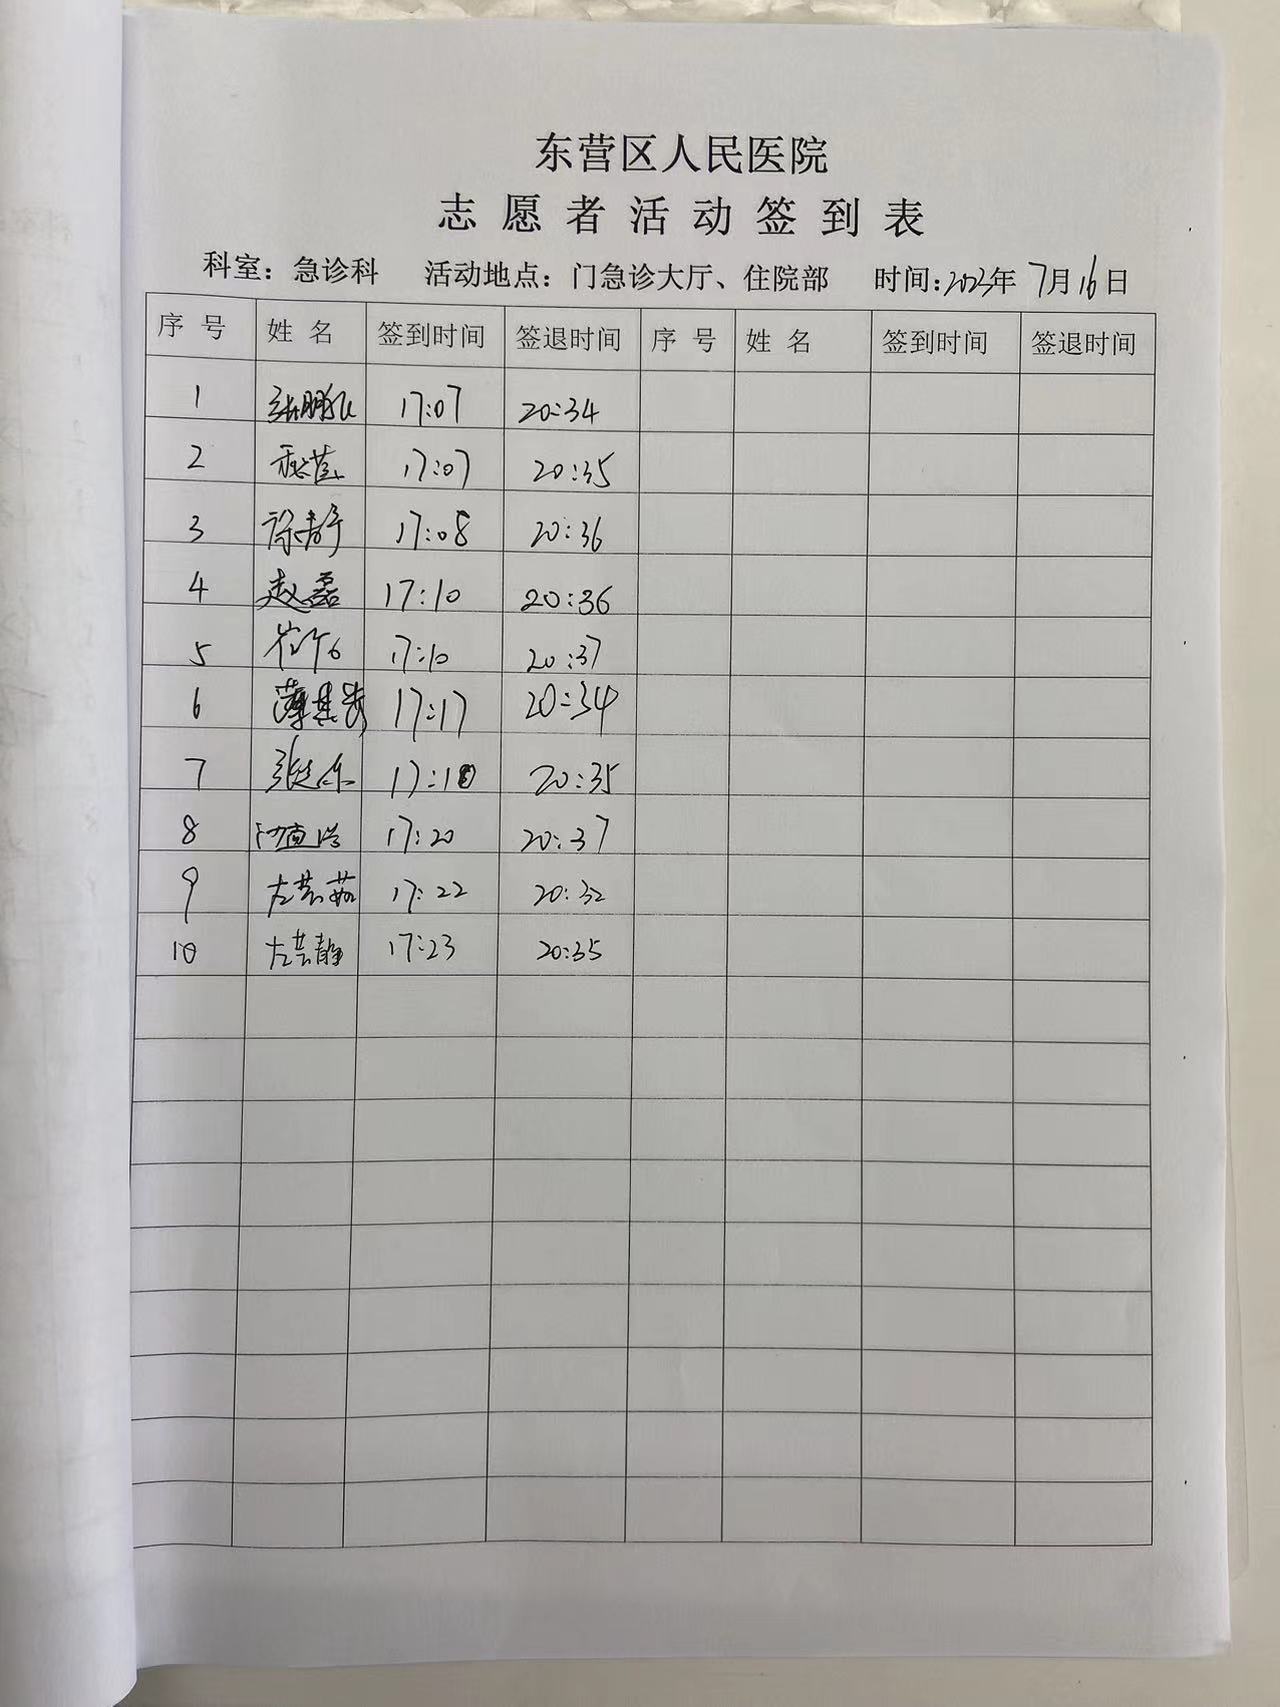 东营区人民医院
志愿者活动签到表
科室：急诊科 活动地点：门急诊大厅、住院部 时间：2023年7月16日
序号 姓名 签到时间 签退时间 序号 姓名 签到时间 签退时间
1 17:07 20:34
2 17:07 20:35
3 徐静 17:08 20:36
4 赵磊 17:10 20:36
5 17:10 20:37
6 17:17 20:34
7 20:35
8 17:20 20:37
9 左芸茹 17:22 20:32
10 左芸静 17:23 20:35